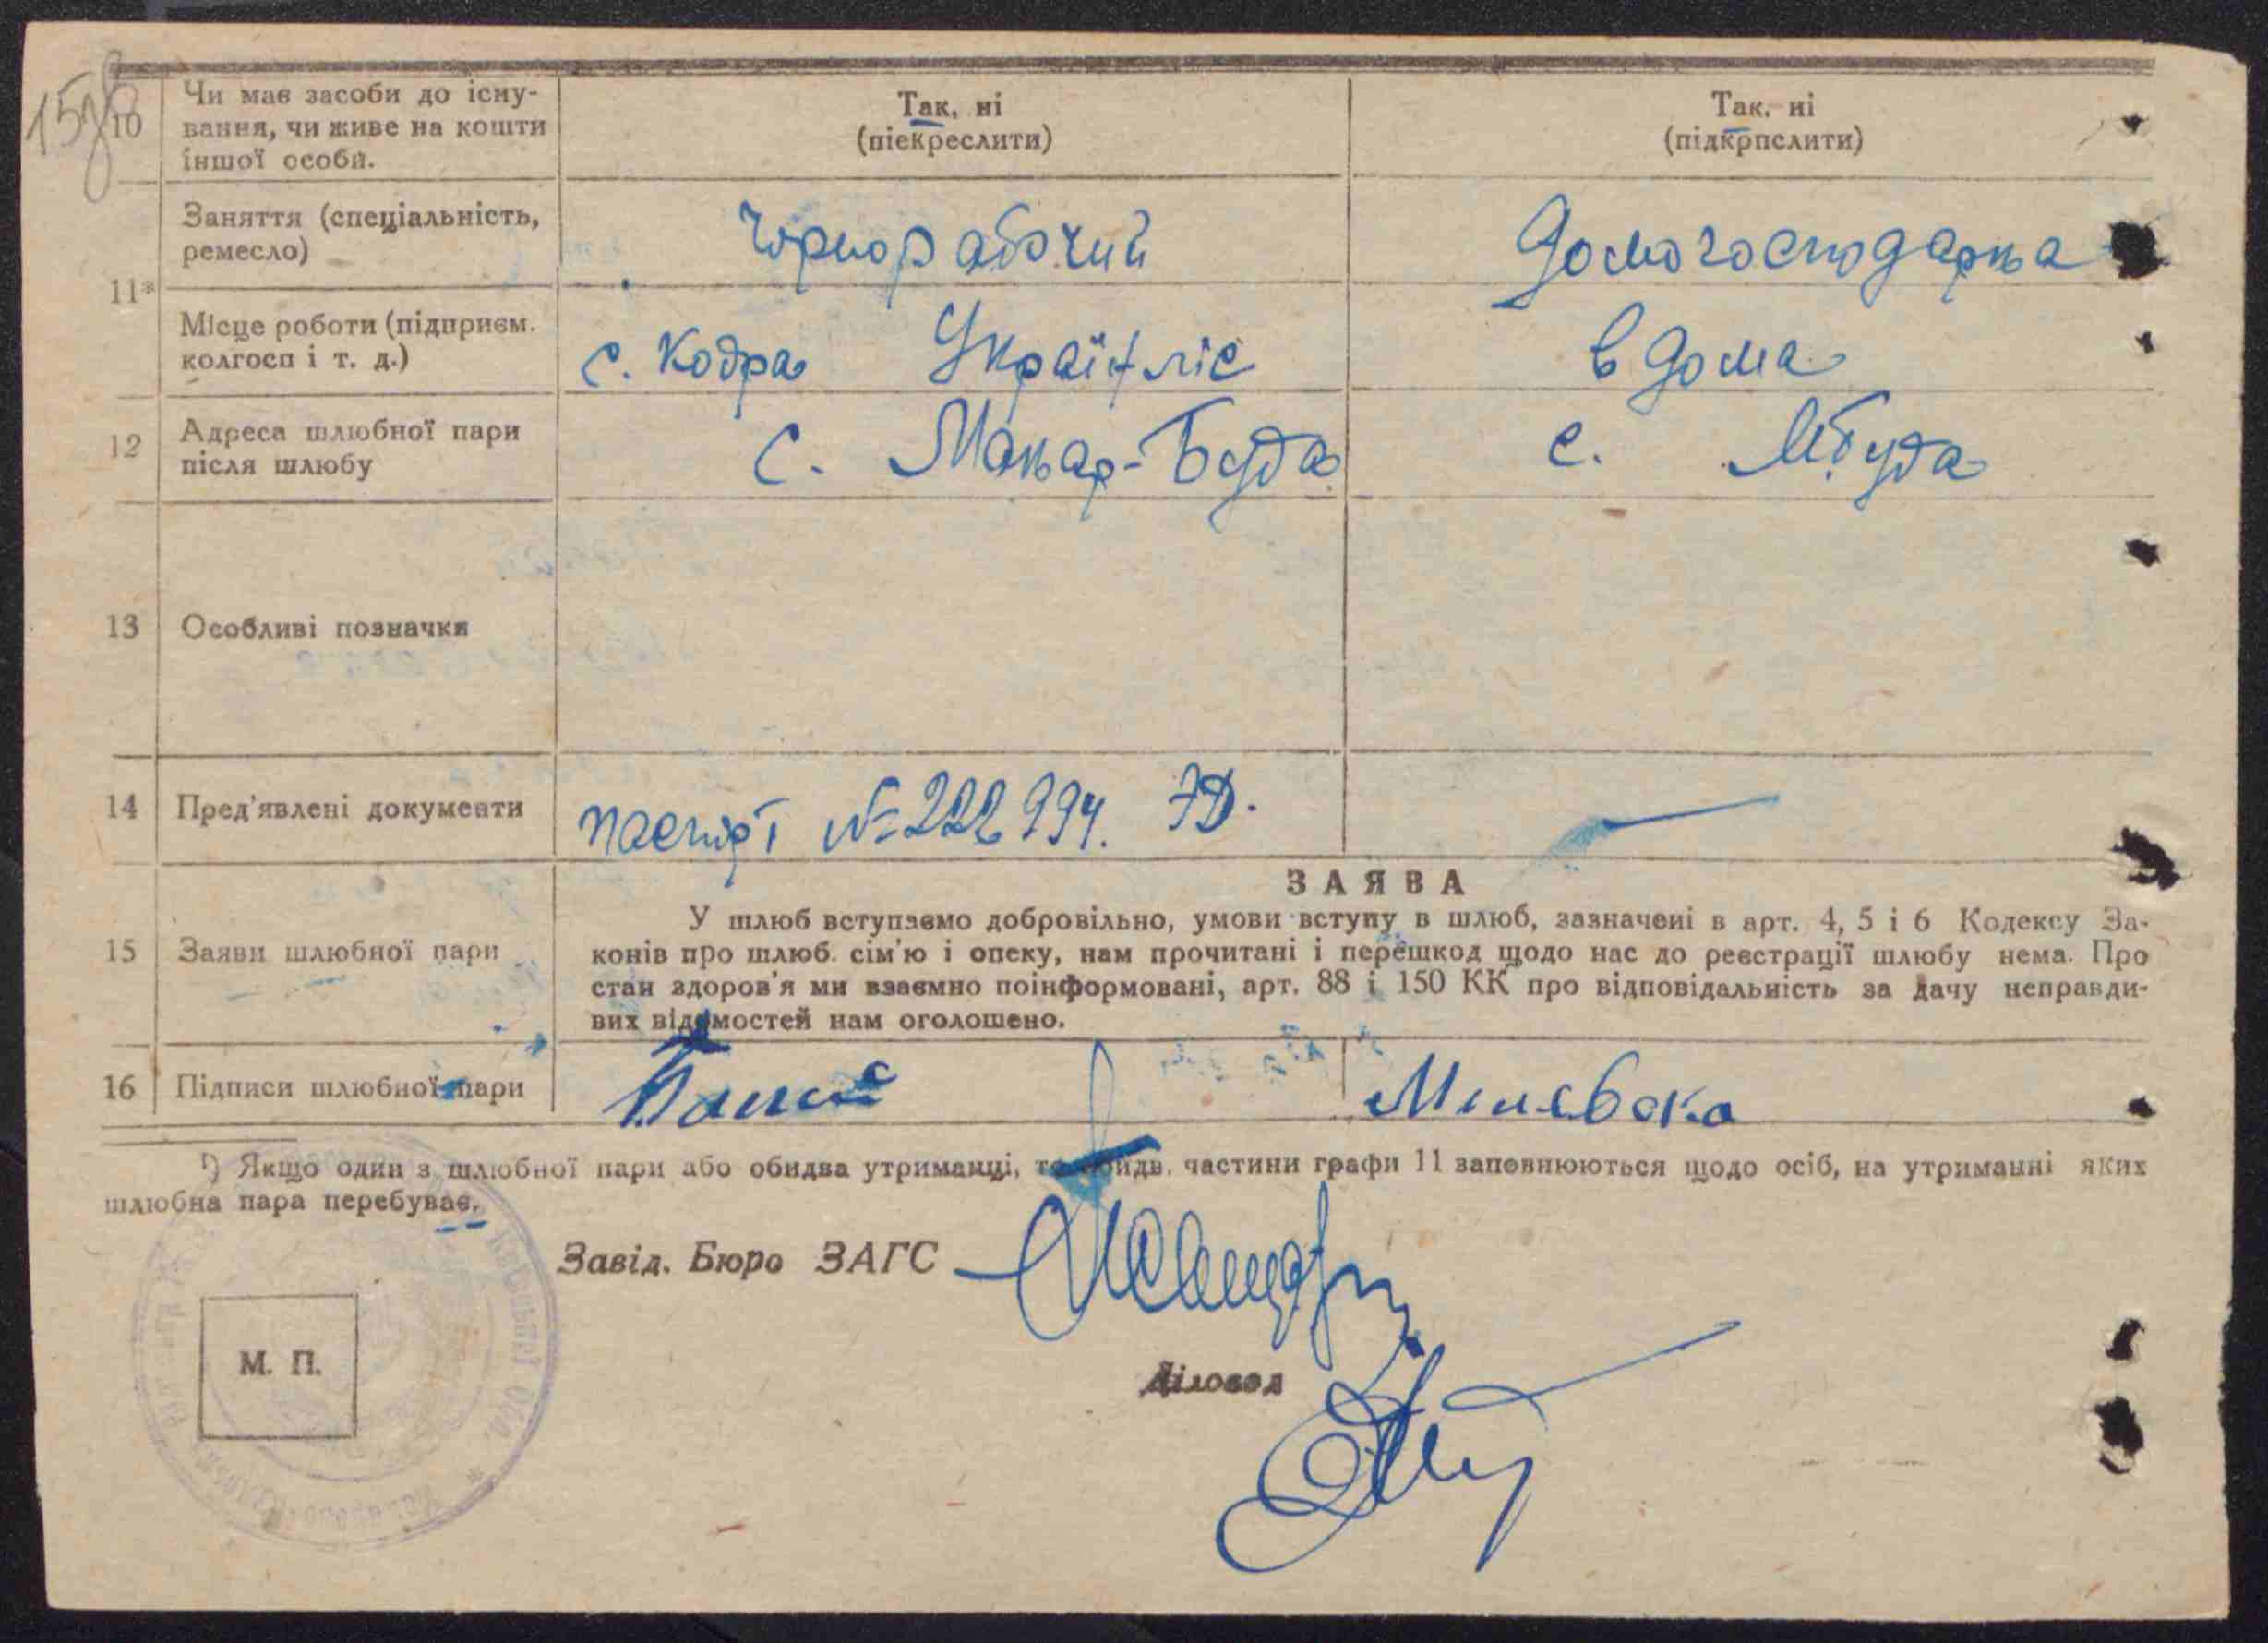 10
Чи має засоби до існу-
вання, чи живе на кошти
іншої особи.
Так, ні
(піекреслити)
Так, ні
(підкрпслити)
11*
Заняття (спеціальність,
ремесло)
Чорнорабочий
Домогосподарка
Місце роботи (підприєм.
колгосп і т. д.)
с. Кодра Україн ліс
в дома
12
Адреса шлюбної пари
після шлюбу
с. Макар-Буда
с. МБуда
13
Особливі позначки
14
Пред'явлені документи
паспорт № 222994. ЭД.
15
Заяви шлюбної пари
ЗАЯВА
У шлюб вступаємо добровільно, умови вступу в шлюб, зазначені в арт. 4, 5 і 6 Кодексу За-
конів про шлюб. сім'ю і опеку, нам прочитані і перешкод щодо нас до реєстрації шлюбу нема. Про
стан здоров'я ми взаємно поінформовані, арт. 88 і 150 КК про відповідальність за дачу неправди-
вих відомостей нам оголошено.
16
Підписи шлюбної пари
¹) Якщо один з шлюбної пари або обидва утриманці, то обидв. частини графи 11 заповнюються щодо осіб, на утриманні яких
шлюбна пара перебуває.
Завід. Бюро ЗАГС
М. П.
Діловод